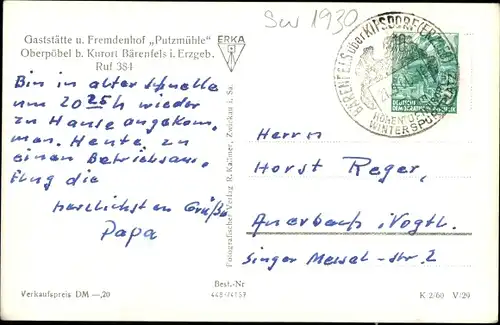 Sw 1930
Gaststätte u. Fremdenhof „Putzmühle"
Oberpöbel b. Kurort Bärenfels i. Erzgeb.
Ruf 384
ERKA
BÄRENFELS über KIPSDORF (ERZGEB)
HÖHEN- U.
WINTERSPORT
10
DEUTSCHE
DEMOKRATISCHE REPUBLIK
Bin in alter
um 20 25 h wieder
zu Hause angekom,
men. Heute zu
einen Betriebsaus,
flug die
herzlichsten Grüße
Papa
Fotografischer Verlag R. Kallmer, Zwickau i. Sa.
Herrn
Horst Reger,
Auerbach i. Vogtl.
Singer str. 2
Verkaufspreis DM —,20
Best.-Nr.
K 2/60 V/29